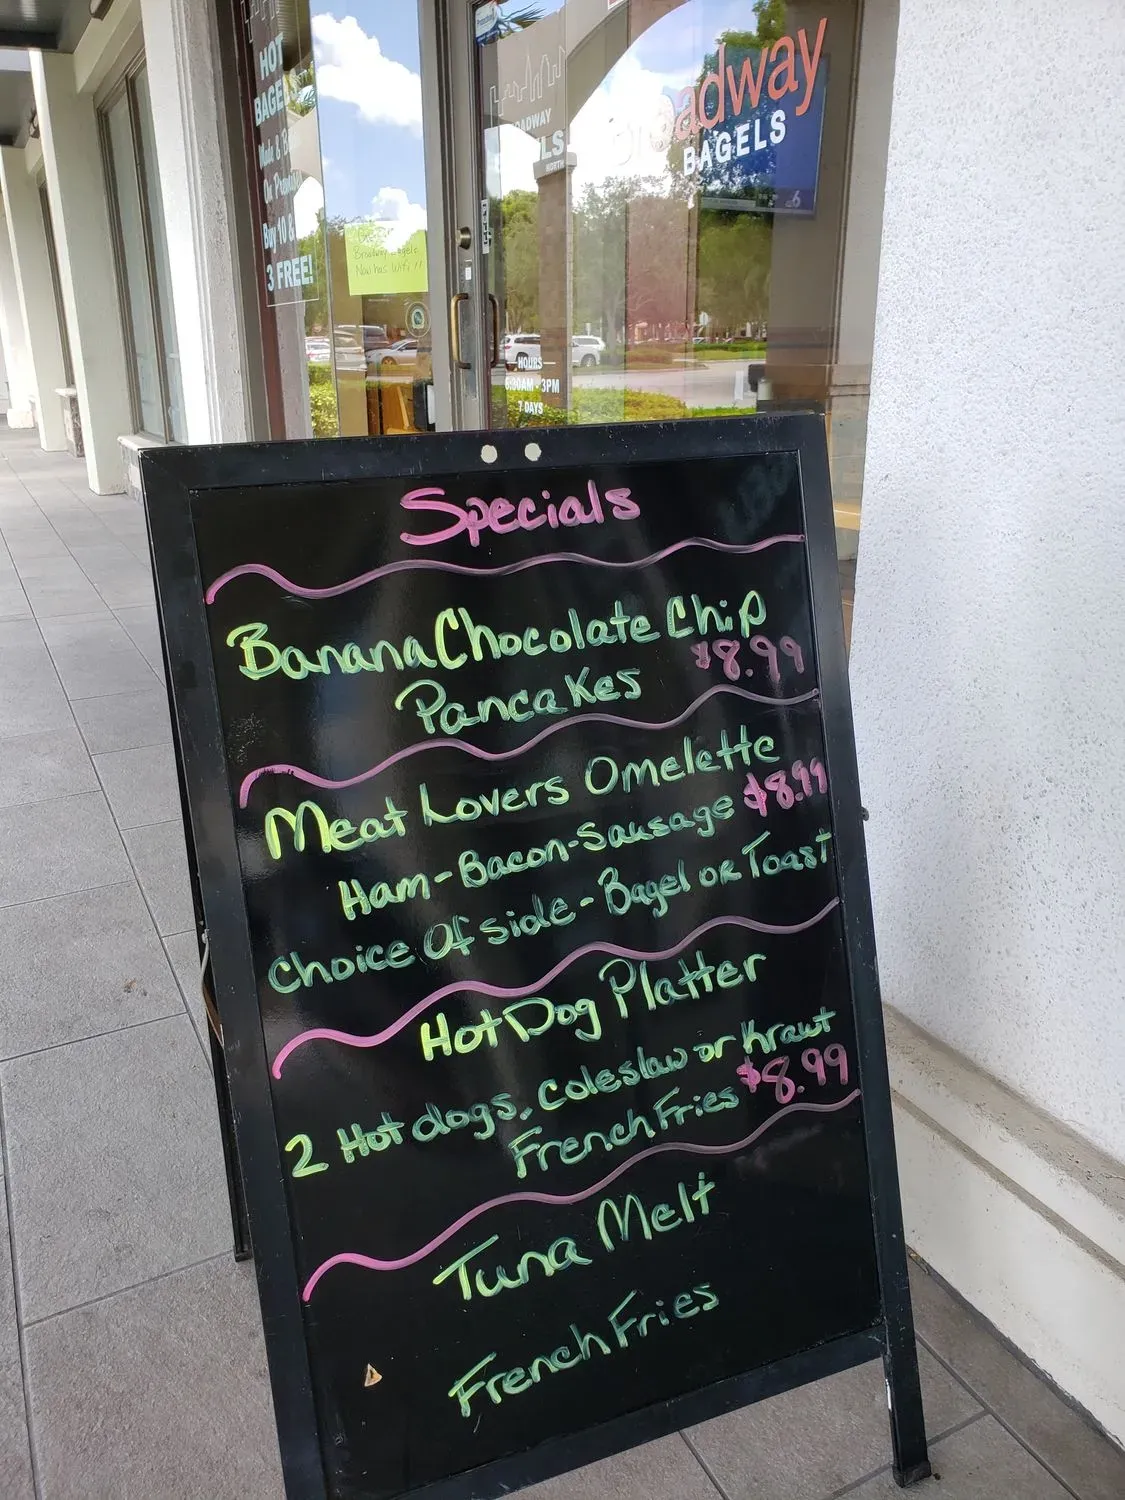 HOT
BAGELS
Buy 10 &
3 FREE!
Broadway Bagels
Now has WiFi!!
BROADWAY
BAGELS
NORTH
Broadway
BAGELS
6
HOURS
6:30AM - 3PM
7 DAYS
Specials
Banana Chocolate Chip
Pancakes $8.99
Meat Lovers Omelette
Ham-Bacon-Sausage $8.99
Choice Of side - Bagel or Toast
Hot Dog Platter
2 Hot dogs, coleslaw or Kraut
French Fries $8.99
Tuna Melt
French Fries